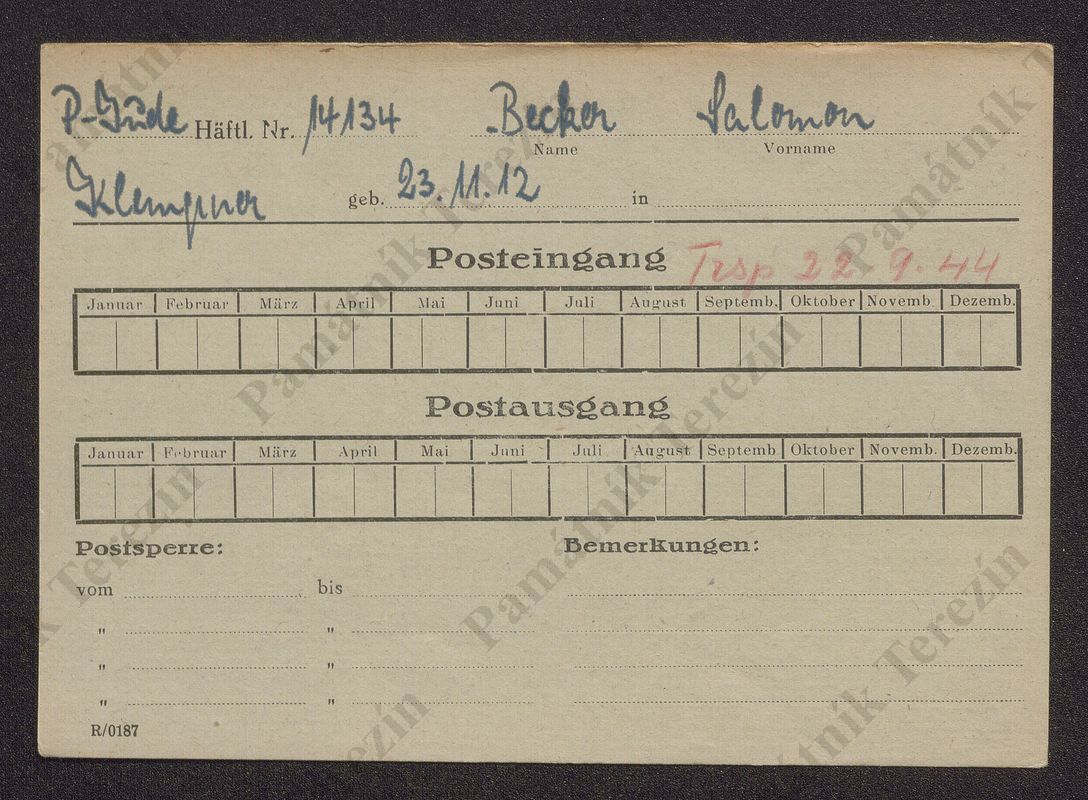 P-Jude Häftl. Nr. 14134 Becker Salomon
Name Vorname
Klempner geb. 23.11.12 in
Posteingang Trsp 22.9.44
Januar Februar März April Mai Juni Juli August Septemb. Oktober Novemb. Dezemb.
Postausgang
Januar Februar März April Mai Juni Juli August Septemb. Oktober Novemb. Dezemb.
Postsperre: Bemerkungen:
vom bis
" "
" "
" "
R/0187
Památník Terezín